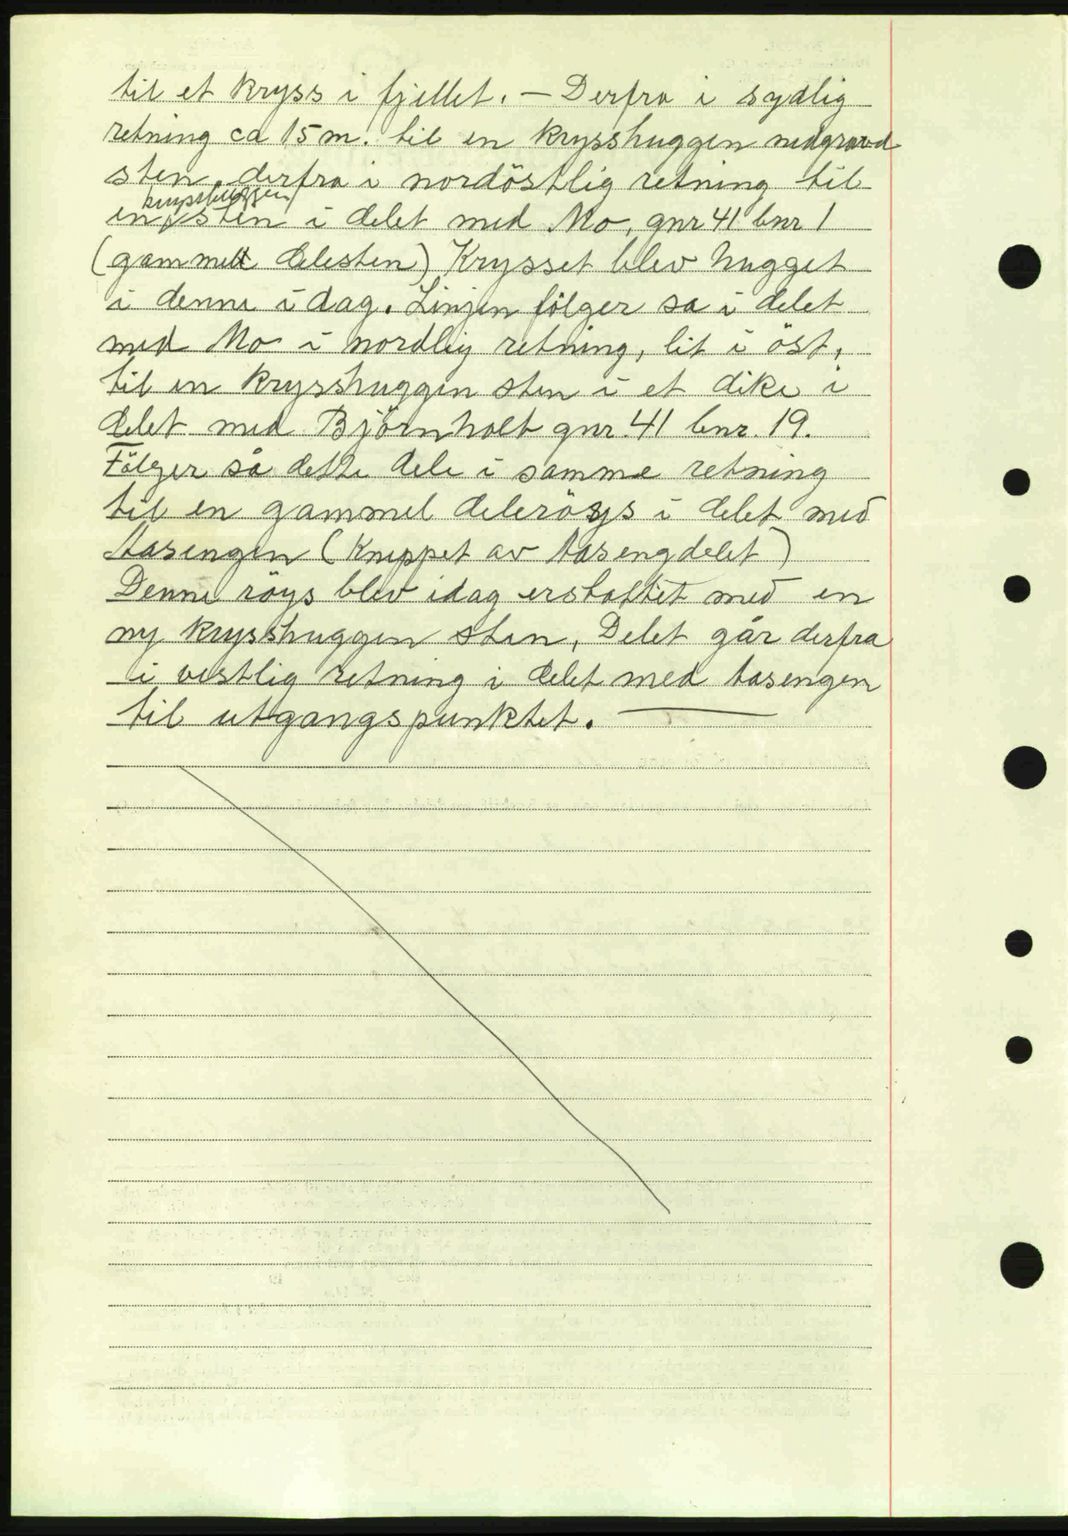 til et kryss i fjellet. — Derfra i sydlig
retning ca 15 m. til en krysshuggen nedgravd
sten, derfra i nordöstlig retning til
krysshuggen
en sten i delet med Mo, gnr 41 bnr 1
(gammelt delesten) Krysset blev hugget
i denne i dag. Linjen fölger så i delet
med Mo i nordlig retning, lit i öst,
til en krysshuggen sten i et dike i
delet med Björnholt gnr. 41 bnr. 19.
Fölger så dette dele i samme retning
til en gammel deleröys i delet med
Aasengen (Knippet av Aasengdelet)
Denne röys blev idag erstattet med en
ny krysshuggen sten, Delet går derfra
i vestlig retning i delet med Aasengen
til utgangspunktet. —